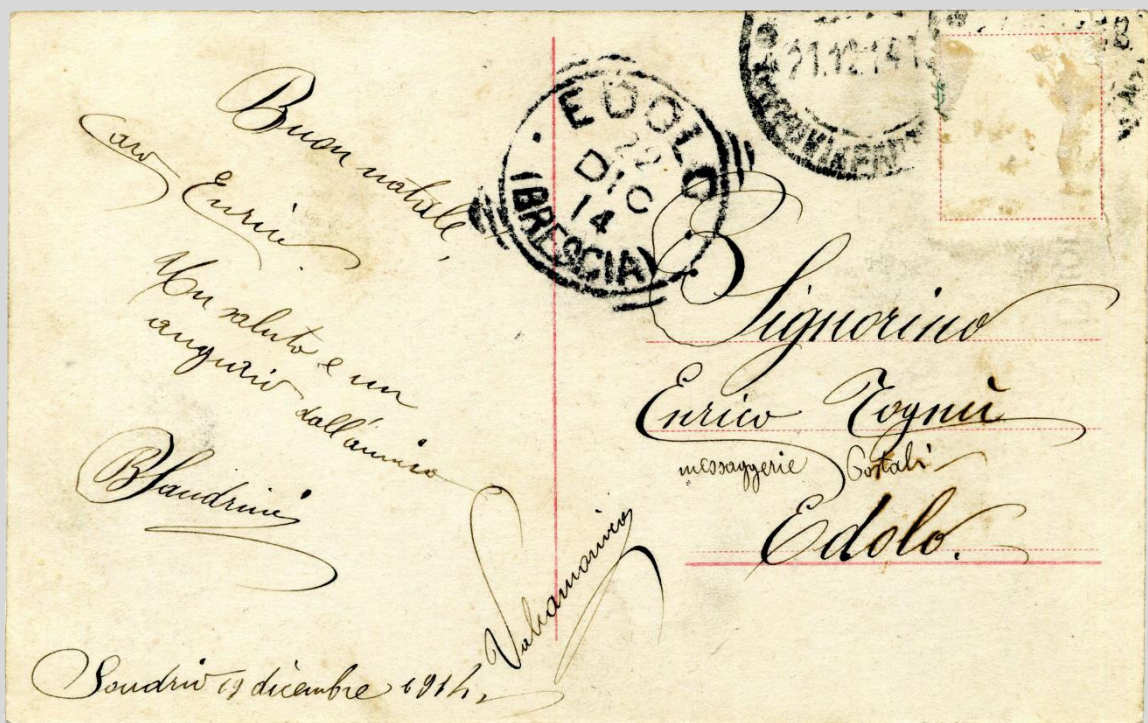 Buon natale,
Caro
Enrico
Un saluto e un
augurio dall'amico
BSandrini
Sondrio 19 dicembre 1914
EDOLO
22
DIC
14
(BRESCIA)
21.12.14
Signorino
Enrico Tognù
messaggerie Postali
Edolo.
Valcamonica